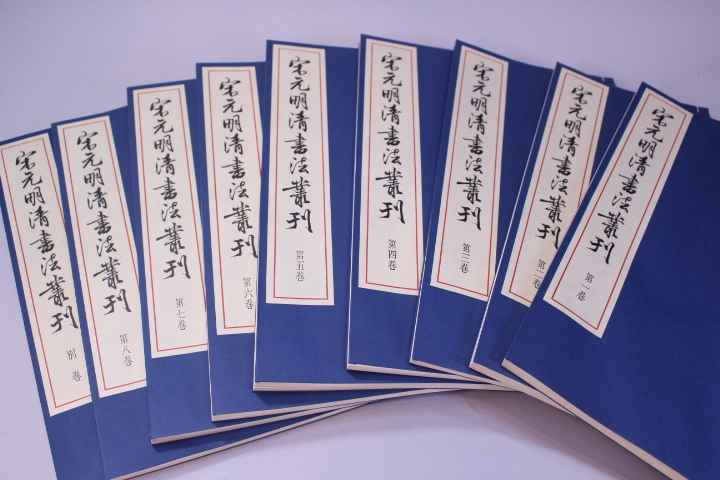 宋元明清書法叢刊
第一卷
宋元明清書法叢刊
第二卷
宋元明清書法叢刊
第三卷
宋元明清書法叢刊
第四卷
宋元明清書法叢刊
第五卷
宋元明清書法叢刊
第六卷
宋元明清書法叢刊
第七卷
宋元明清書法叢刊
第八卷
宋元明清書法叢刊
別卷